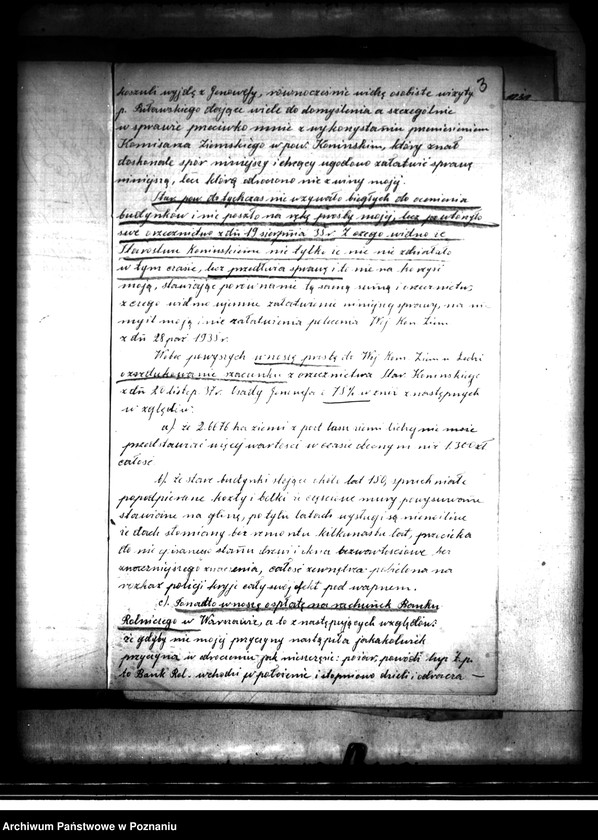 3
koszuli wyjdę z Jenowefy, równocześnie widzę osobiste wizyty
p. Biławskiego dające wiele do domyślenia a szczególnie
w sprawie przeciwko mnie z wykorzystaniem przeniesieniem
Komisarza Ziemskiego w pow. Konińskim, który znał
doskonale spór niniejszy i chcący ugodowo załatwić sprawę
niniejszą, lecz którą odroczono nie z winy mojej.
Star. pow. dotychczas nie wzywało biegłych do ocenienia
budynków i nie poszło na rękę prośby mojej, lecz powtórzyło
swe orzecznictwo z dn. 19 sierpnia 35 r. z czego widno że
Starostwo Konińskie nie tylko że nic nie zdziałało
w tym czasie, lecz przedłuża sprawę i to nie na korzyść
moją, stwarzając ponownie tą samą winą i orzecznictwo,
z czego widno ujemne załatwienie niniejszej sprawy, na nie
myśl moją i nie załatwienia polecenia Woj. Kom. Ziem.
z dn. 28 paź. 1935 r.
Wobec powyższych wnoszę prośbę do Woj. Kom. Ziem. w Łodzi
o zredukowanie szacunku z orzecznictwa Star. Konińskiego
z dn. 20 listop. 37 r. Osady Jenowefa i 75% w niż z następnych
względów:
a) że 2.6676 ha ziemi z pod lasu ziemi lichej nie może
przedstawiać więcej wartości w czasie obecnym niż 1.300 zł
całość
b) że stare budynki stojące około lat 150, spruchniałe
popodpierane kozły i belki i częściowe mury powysuwane
stawiane na glinę, po tylu latach wysługi są
że dach słomiany bez remontu kilkunastu lat, przecieka
do nie opisania stanu drzwi i okna bezwartościowe bez
znaczniejszego znaczenia, całość zewnętrza pobielona na
rozkaz policji kryje cały swój efekt pod wapnem.
c) Ponadto wnoszę o spłatę na rachunek Banku
Rolniczego w Warszawie, a to z następujących względów:
że gdyby nie z mojej przyczyny nastąpiła jakakolwiek
przyczyna w odroczeniu jak nieszczęście: pożar, powódź lup t.p.
to Bank Rol. wchodzi w położenie i stopniowo dzieli i odracza —
Archiwum Państwowe w Poznaniu